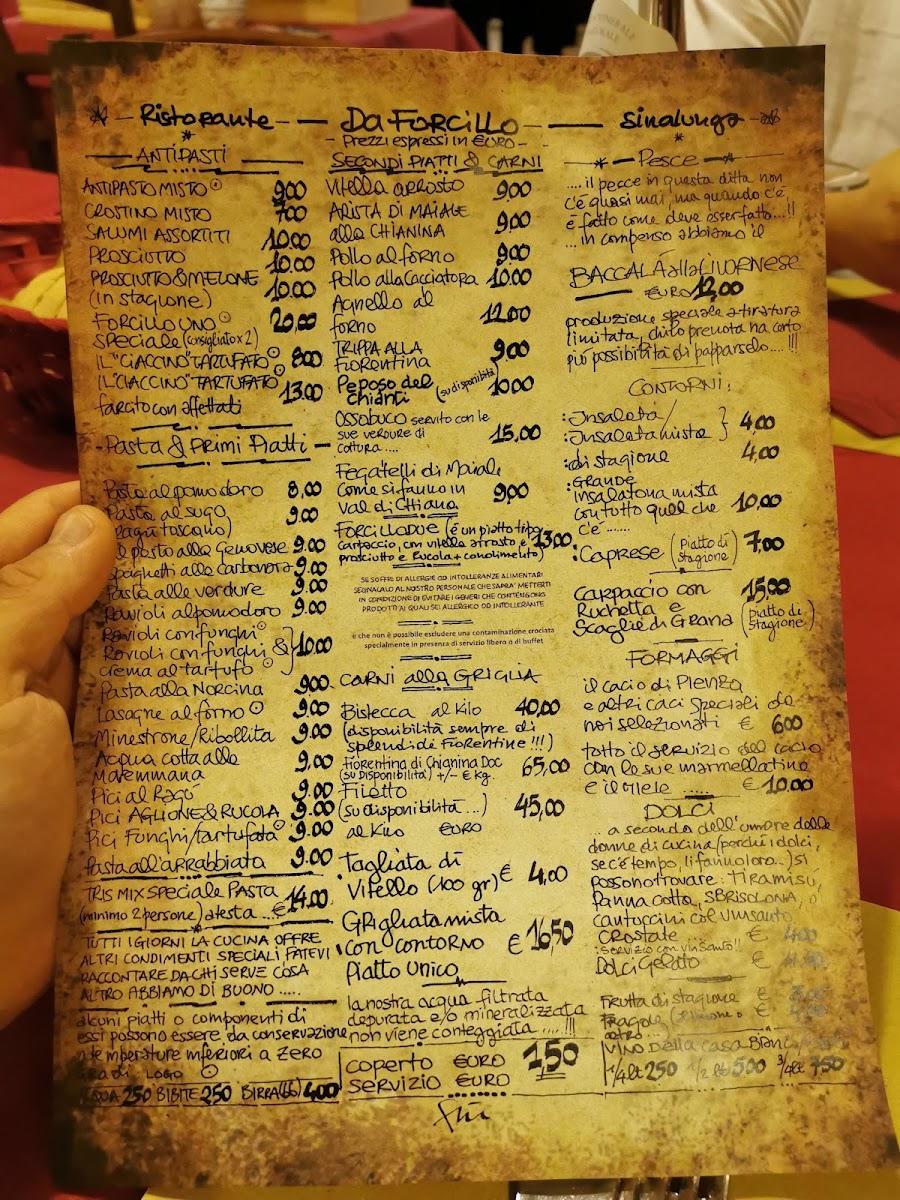 Ristorante — Da Forcillo — Sinalunga
Prezzi espressi in €uro
ANTIPASTI
ANTIPASTO MISTO 9,00
CROSTINO MISTO 7,00
SALUMI ASSORTITI 10.00
PROSCIUTTO 10.00
PROSCIUTTO & MELONE 10.00
(in stagione)
FORCILLO UNO 20,00
Speciale (consigliato x 2)
IL "CIACCINO" TARTUFATO 8,00
IL "CIACCINO" TARTUFATO 13.00
farcito con affettati
Pasta & Primi Piatti
Pasta al pomodoro 8,00
Pasta al sugo 9.00
(Ragù toscano)
al pesto alla Genovese 9.00
Spaghetti alla Carbonara 9.00
Pasta alle verdure 9.00
Ravioli al pomodoro 9.00
Ravioli con funghi
Ravioli con funghi & } 10.00
crema al tartufo
Pasta alla Norcina 9.00
Lasagne al forno 9.00
Minestrone/Ribollita 9.00
Acqua cotta alla 9,00
Maremmana
Pici al Ragù 9.00
PICI AGLIONE & RUCOLA 9.00
Pici Funghi/tartufata 9.00
Pasta all'arrabbiata 9.00
TRIS MIX SPECIALE PASTA
(minimo 2 persone) a testa ..€ 14.00
TUTTI I GIORNI LA CUCINA OFFRE
ALTRI CONDIMENTI SPECIALI FATEVI
RACCONTARE DA CHI SERVE COSA
ALTRO ABBIAMO DI BUONO .....
alcuni piatti o componenti di
essi possono essere da conservazione
a temperature inferiori a zero
LOGO
250 BIBITE 250 BIRRA (66) 400
SECONDI PIATTI & CARNI
Vitella arrosto 9,00
ARISTA DI MAIALE
alla CHIANINA 9,00
Pollo al forno 9.00
Pollo alla Cacciatora 10.00
Agnello al 12.00
forno
TRIPPA ALLA 9,00
Fiorentina
Peposo del (su disponibilità) 10.00
Chianti
Ossobuco servito con le
sue verdure di 15,00
cottura ....
Fegatelli di Maiale
Come si fanno in 9,00
Val di Chiana
FORCILLO DUE (è un piatto tipo
carpaccio, con vitella arrosto e 13.00
prosciutto e Rucola + condimento)
SE SOFFRI DI ALLERGIE OD INTOLLERANZE ALIMENTARI
SEGNALALO AL NOSTRO PERSONALE CHE SAPRA' METTERTI
IN CONDIZIONE DI EVITARE I GENERI CHE CONTENGONO
PRODOTTI AI QUALI SEI ALLERGICO OD INTOLLERANTE
e che non è possibile escludere una contaminazione crociata
specialmente in presenza di servizio libero o di buffet
CARNI alla GRIGLIA
Bistecca al Kilo 40,00
(disponibilità sempre di
splendide Fiorentine!!!)
Fiorentina di Chianina DOC
(SU DISPONIBILITA') +/- € Kg. 65,00
Filetto
(su disponibilità ...) 45,00
al Kilo €URO
Tagliata di
Vitello (100 gr) € 4,00
Grigliata mista
con contorno € 16,50
Piatto Unico
la nostra acqua filtrata
depurata e/o mineralizzata
non viene conteggiata ....!!!
coperto €URO 1,50
servizio €URO
Pesce
.... il pesce in questa ditta non
c'è quasi mai, ma quando c'è
è fatto come deve esser fatto...!!
... in compenso abbiamo il
BACCALÀ alla LIVORNESE
€URO 12,00
produzione speciale a tiratura
limitata, chi lo prenota ha certo
più possibilità di papparselo....!!!
CONTORNI:
: Insalata/
: Insalata mista } 4,00
: di stagione 4,00
: GRANDE
insalatona mista
con tutto quel che 10,00
c'è ......
: Caprese (Piatto di stagione) 7,00
Carpaccio con 15,00
Ruchetta e
Scaglie di Grana (piatto di stagione)
FORMAGGI
il cacio di Pienza
e altri caci speciali da
noi selezionati € 6,00
tutto il servizio del cacio
con le sue marmellatine
e il Miele ..... € 10,00
DOLCI
... a seconda dell'umore delle
donne di cucina (perché i dolci,
se c'è tempo, li fanno loro...) si
possono trovare: Tiramisù,
Panna cotta, SBRISOLONA, o
cantuccini col Vinsanto,
CROSTATE € 4,00
: servizio con Vin Santo!!
Dolci Gelato €
Frutta di stagione €
Fragole
VINO Della casa
1/4 lt 250 1/2 lt 500 3/4 lt 750